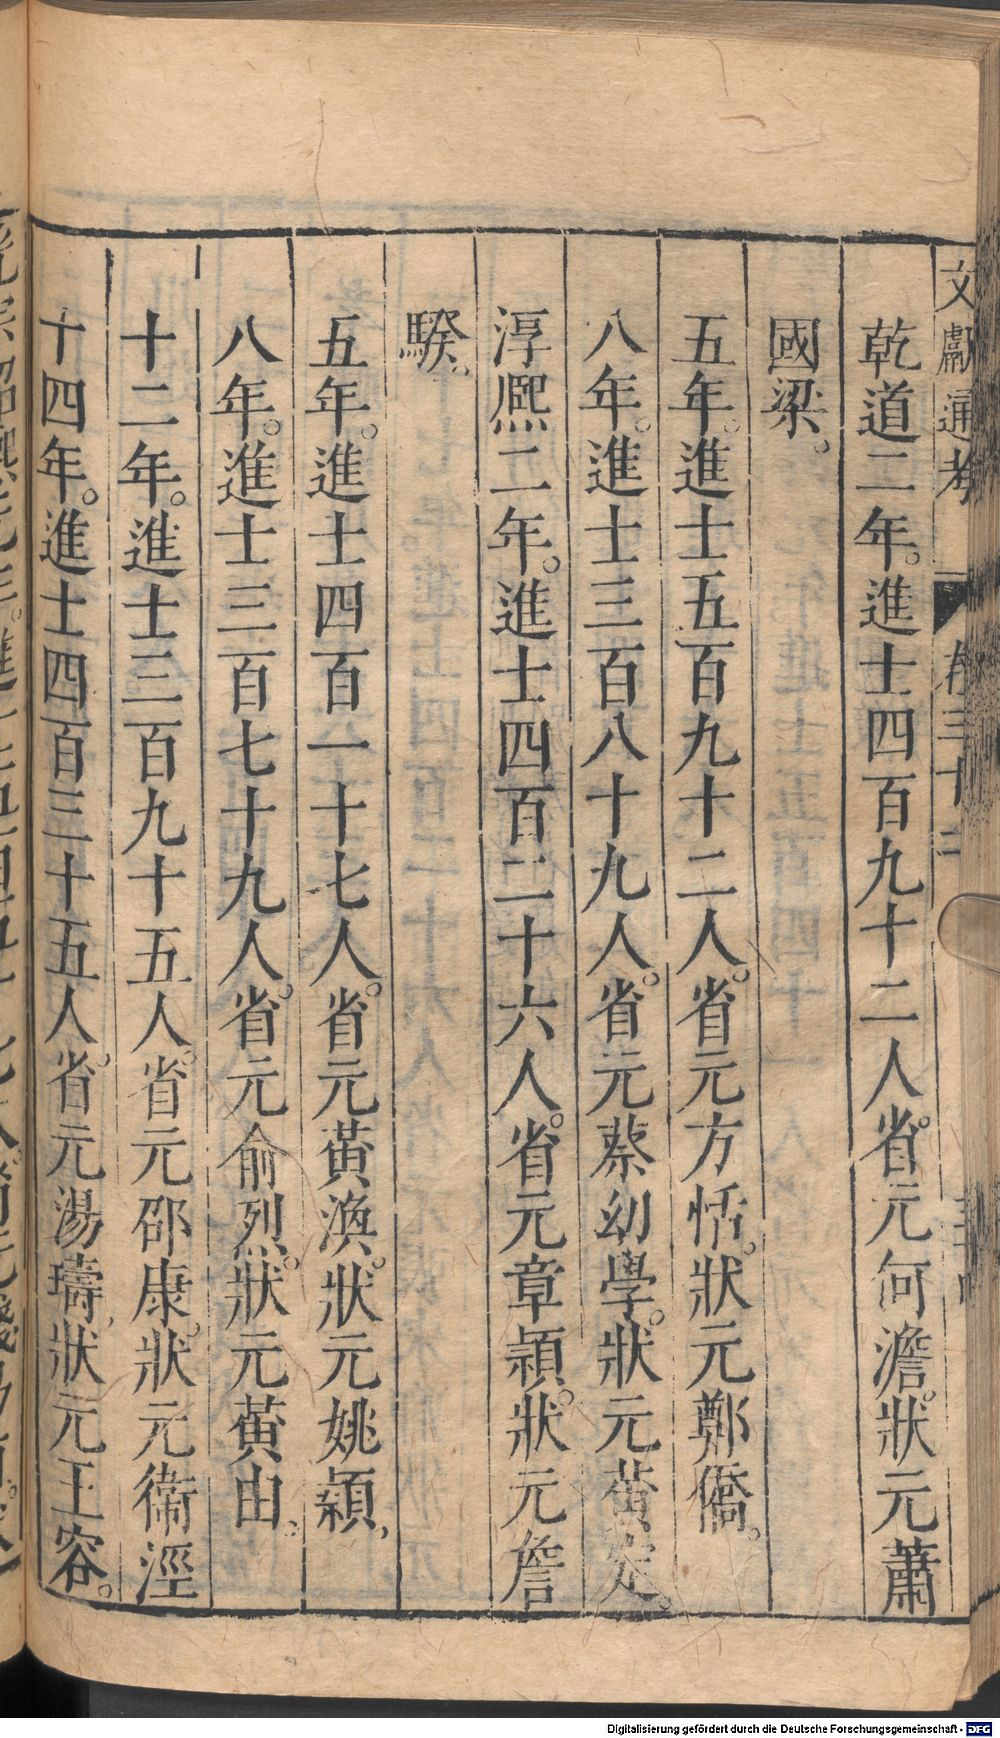 文獻通考 卷三十二
乾道二年。進士四百九十二人。省元何澹。狀元蕭
國梁。
五年。進士五百九十二人。省元方恬。狀元鄭僑。
八年。進士三百八十九人。省元蔡幼學。狀元黃定。
淳熙二年。進士四百二十六人。省元章頴。狀元詹
騤。
五年。進士四百一十七人。省元黃渙。狀元姚穎。
八年。進士三百七十九人。省元俞烈。狀元黃由。
十二年。進士三百九十五人。省元邵康。狀元衛涇
十四年。進士四百三十五人。省元湯璹。狀元王容。
Digitalisierung gefördert durch die Deutsche Forschungsgemeinschaft - DFG